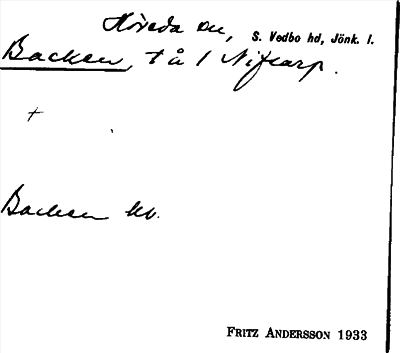 Höreda sn, S. Vedbo hd, Jönk. l.
Backen, t å 1 Nifearp.
+
Backen kv.
FRITZ ANDERSSON 1933